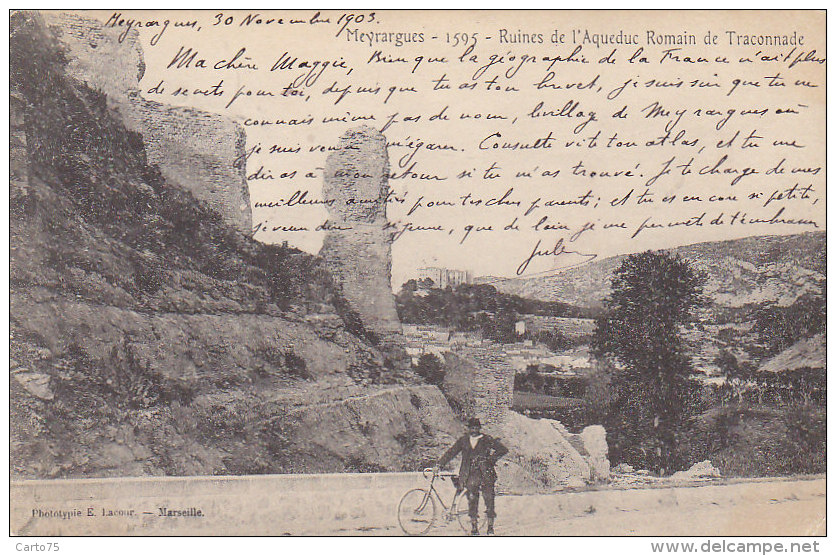 Meyrargues, 30 Novembre 1903.
Meyrargues - 1595 - Ruines de l'Aqueduc Romain de Traconnade
Ma chère Maggie, Bien que la géographie de la France n'ait plus
de secrets pour toi, depuis que tu as ton brevet, je suis sûr que tu ne
connais même pas de nom, le village de Meyrargues où
je suis venu m'égarer. Consulte vite ton atlas, et tu me
diras à mon retour si tu m'as trouvé. Je te charge de mes
meilleures amitiés pour tes chers parents; et tu es encore si petite,
je veux dire si jeune, que de loin je me permets de t'embrasser
Jules
Phototypie E. Lacour. — Marseille.
Carto75
www.delcampe.net